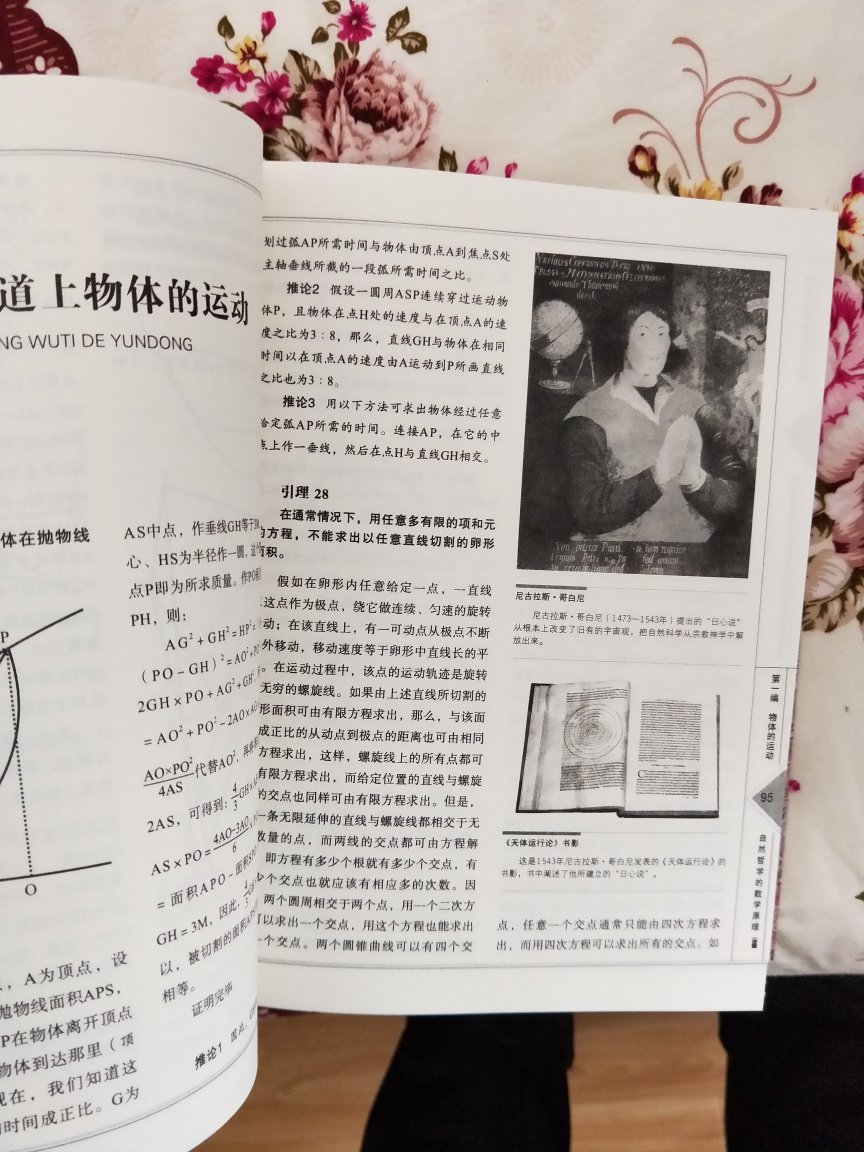 道上物体的运动
NG WUTI DE YUNDONG
体在抛物线
P
O
，A为顶点，设
抛物线面积APS，
P在物体离开顶点
物体到达那里（顶
现在，我们知道这
时间成正比。G为
AS中点，作垂线GH等于
心、HS为半径作一圆，
点P即为所求质量。作PO
PH，则：
AG²＋GH²＝HP²＝
（PO－GH）²＝AO²＋
2GH×PO＋AG²＋GH²
＝AO²＋PO²－2AO×
AO×PO²/4AS 代替AO²，
2AS，可得到：4/3 GH×
AS×PO＝(4AO-3AO)/6
＝面积APO－面积
GH＝3M，因此，4/3
以，被切割的面积
相等。
证明完毕
推论1 因此，
划过弧AP所需时间与物体由顶点A到焦点S处
主轴垂线所截的一段弧所需时间之比。
推论2 假设一圆周ASP连续穿过运动物
体P，且物体在点H处的速度与在顶点A的速
度之比为3：8，那么，直线GH与物体在相同
时间以在顶点A的速度由A运动到P所画直线
之比也为3：8。
推论3 用以下方法可求出物体经过任意
给定弧AP所需的时间。连接AP，在它的中
点上作一垂线，然后在点H与直线GH相交。
引理 28
在通常情况下，用任意多有限的项和元
的方程，不能求出以任意直线切割的卵形
面积。
假如在卵形内任意给定一点，一直线
这点作为极点，绕它做连续、匀速的旋转
动；在该直线上，有一可动点从极点不断
外移动，移动速度等于卵形中直线长的平
。在运动过程中，该点的运动轨迹是旋转
无穷的螺旋线。如果由上述直线所切割的
形面积可由有限方程求出，那么，与该面
成正比的从动点到极点的距离也可由相同
方程求出，这样，螺旋线上的所有点都可
有限方程求出，而给定位置的直线与螺旋
的交点也同样可由有限方程求出。但是，
一条无限延伸的直线与螺旋线都相交于无
数量的点，而两线的交点都可由方程解
即方程有多少个根就有多少个交点，有
个交点也就应该有相应多的次数。因
两个圆周相交于两个点，用一个二次方
可以求出一个交点，用这个方程也能求出
一个交点。两个圆锥曲线可以有四个交
尼古拉斯·哥白尼
尼古拉斯·哥白尼（1473—1543年）提出的“日心说”
从根本上改变了旧有的宇宙观，把自然科学从宗教神学中解
放出来。
《天体运行论》书影
这是1543年尼古拉斯·哥白尼发表的《天体运行论》的
书影，书中阐述了他所建立的“日心说”。
点，任意一个交点通常只能由四次方程求
出，而用四次方程可以求出所有的交点。如
第一编 物体的运动
95
自然哲学的数学原理